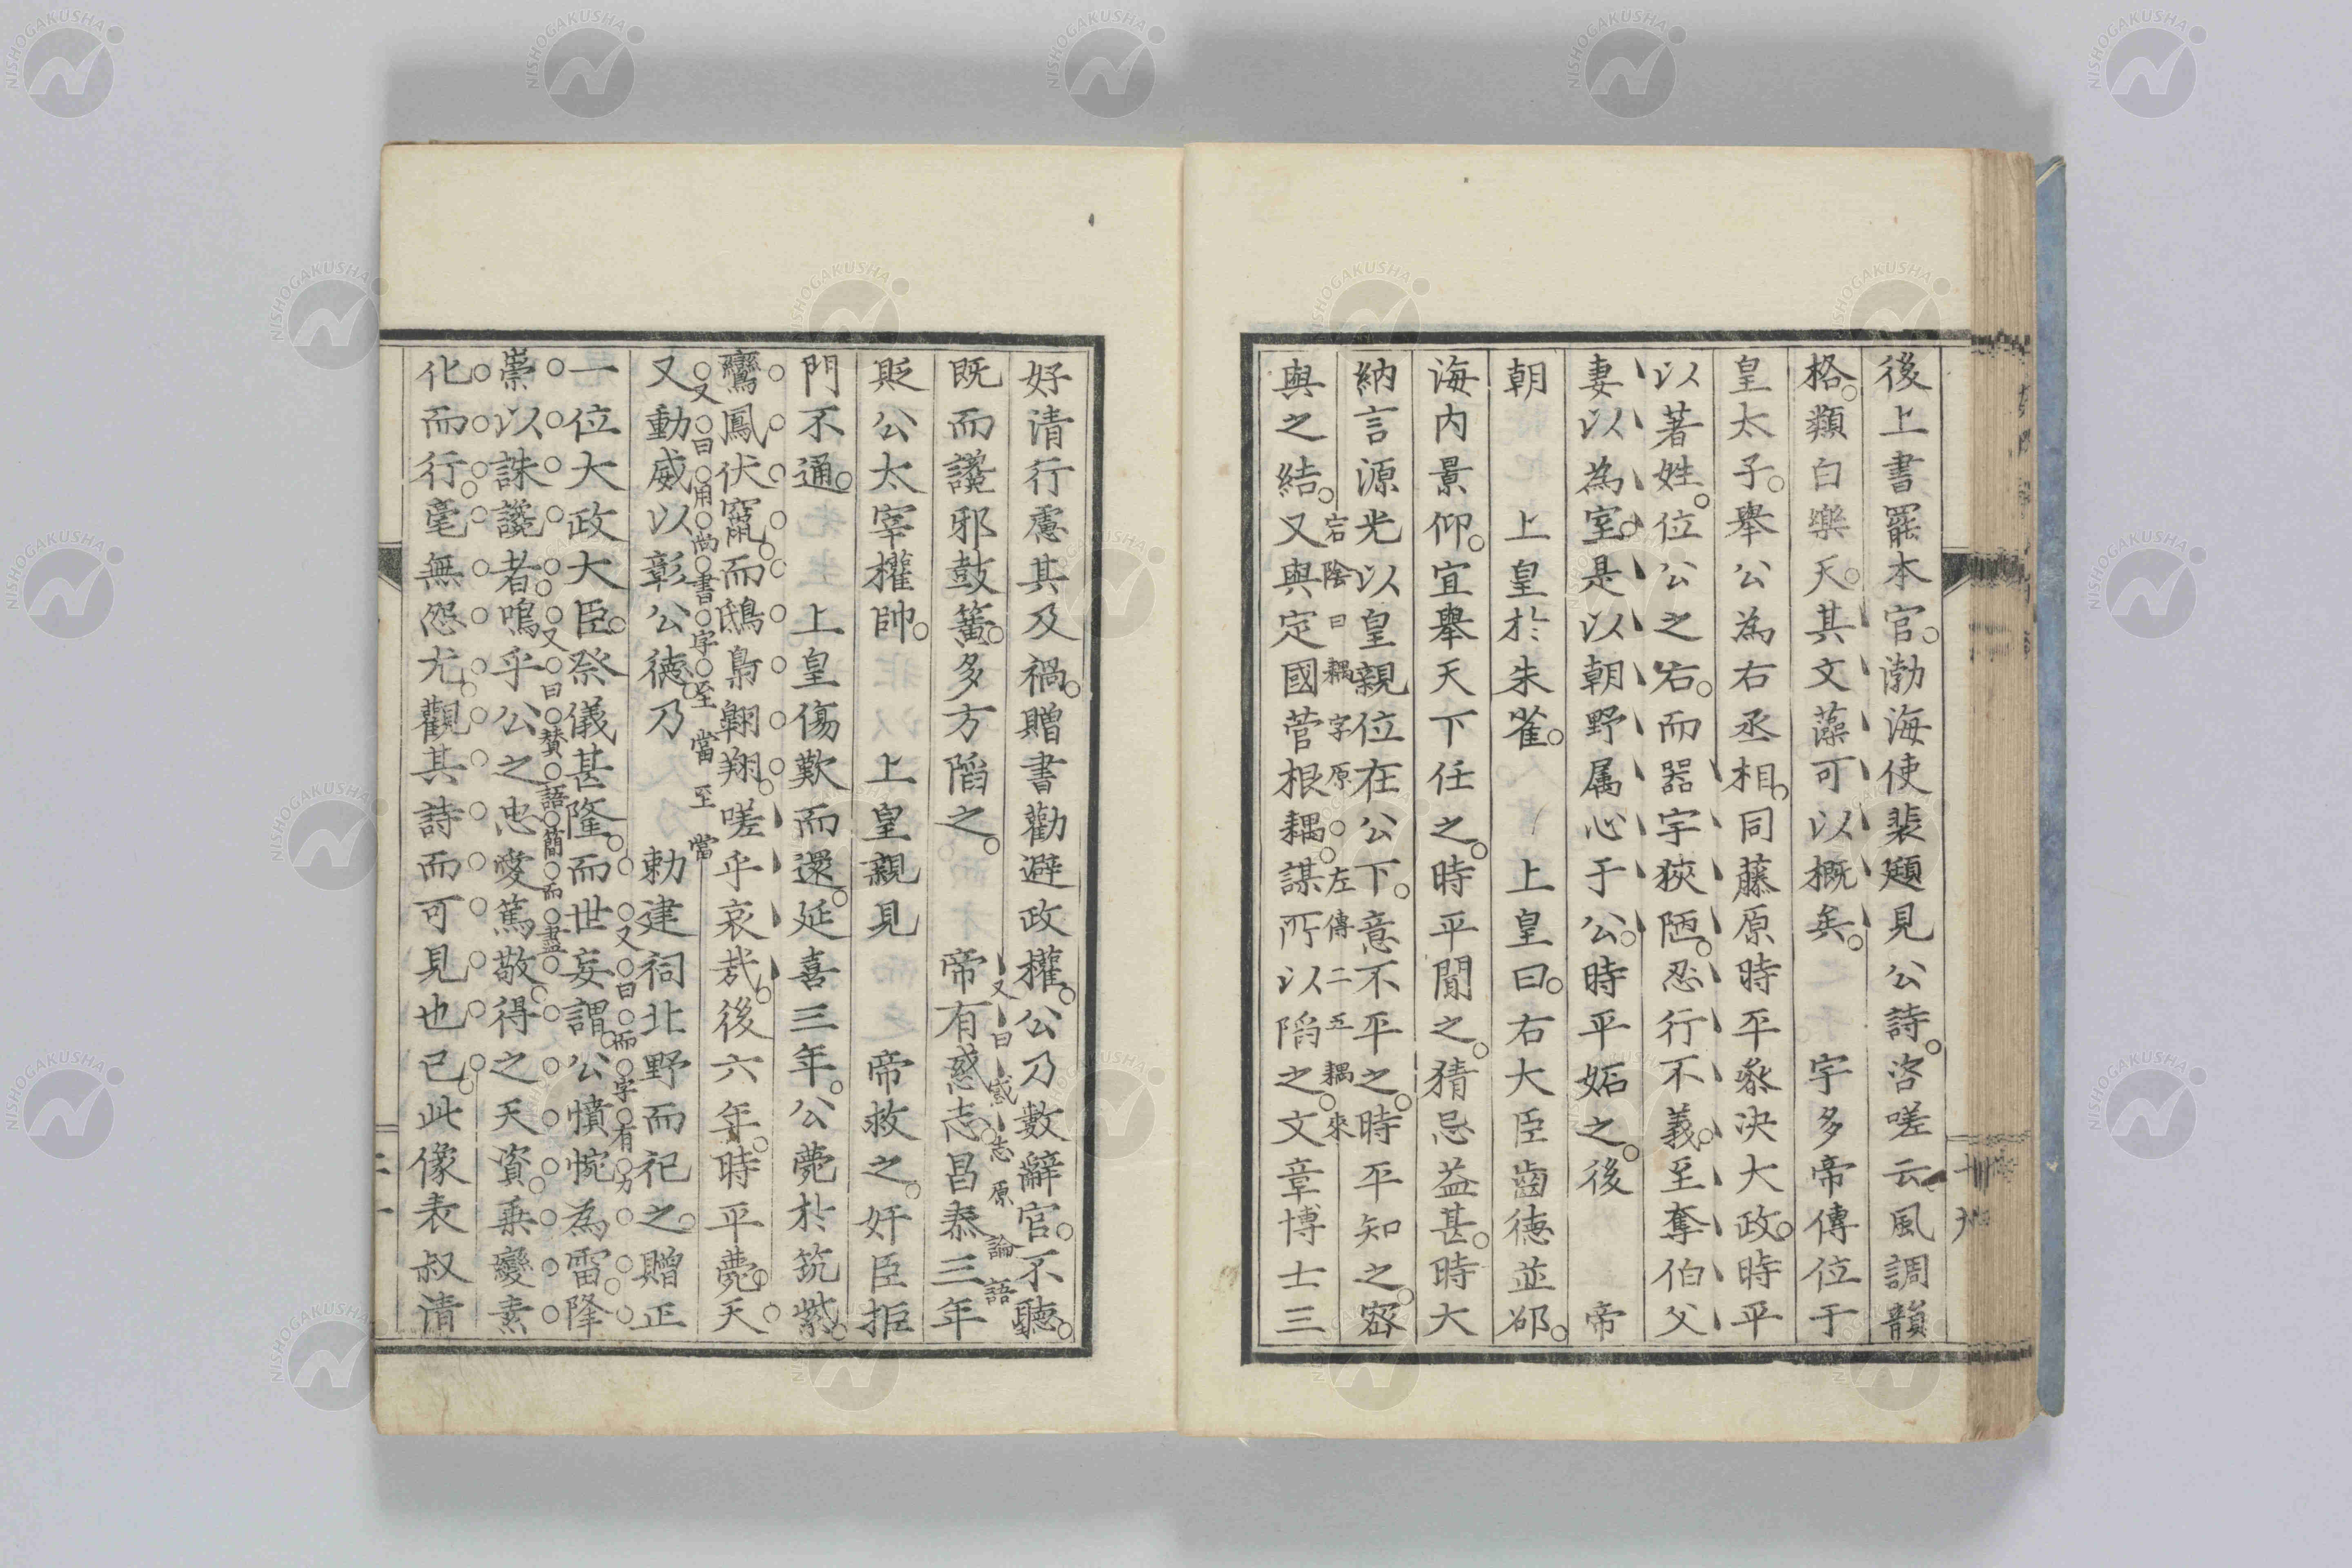 後上書罷本官。渤海使裴頲見公詩。咨嗟云風調韻
格。類白樂天。其文藻可以概矣。 宇多帝傳位于
皇太子。舉公為右丞相。同藤原時平叅決大政。時平
以著姓。位公之右。而器宇狹陋。忍行不義。至奪伯父
妻以為室。是以朝野属心于公。時平妬之。後 帝
朝 上皇於朱雀。 上皇曰。右大臣齒德並邵。
海内景仰。宜舉天下任之。時平聞之。猜忌益甚。時大
納言源光以皇親位在公下。意不平之。時平知之。密
宕陰曰耦字原○左傳二五耦來
與之結。又與定國菅根耦。謀所以陷之。文章博士三
好清行慮其及禍。贈書勸避政權。公乃數辭官。不聽。
又曰惑志原論語
既而讒邪鼓簧。多方陷之。 帝有惑志。昌泰三年
貶公太宰權帥。 上皇親見 帝救之。奸臣拒
門不通。 上皇傷歎而還。延喜三年。公薨於筑紫。
鸞鳳伏竄。而鴟梟翱翔。嗟乎哀哉。後六年。時平薨。天
又曰用尚書字至當至當
又動威以彰公德。乃 勅建祠北野而祀之。贈正
又曰而字有力
一位大政大臣。祭儀甚隆。而世妄謂公憤惋為雷。降
又曰贊語簡而盡
祟以誅讒者。嗚乎公之忠愛篤敬。得之天資。乗變素
化而行。毫無怨尤。觀其詩而可見也已。此像表叔清